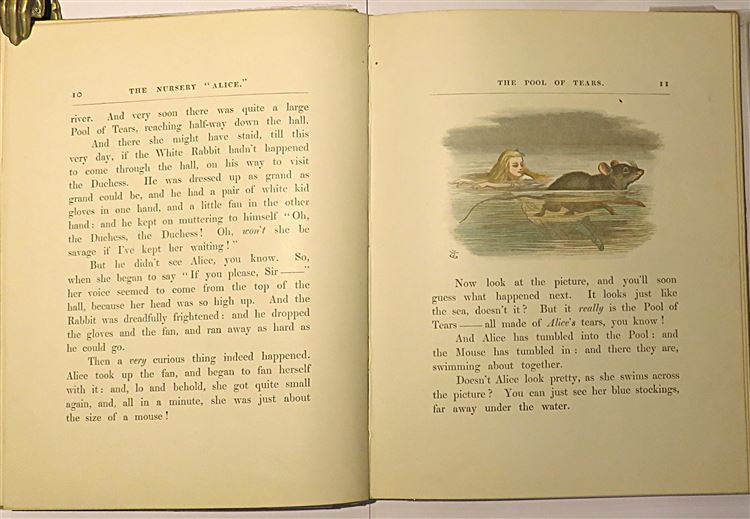 10 THE NURSERY "ALICE."
river. And very soon there was quite a large
Pool of Tears, reaching half-way down the hall.
And there she might have staid, till this
very day, if the White Rabbit hadn't happened
to come through the hall, on his way to visit
the Duchess. He was dressed up as grand as
grand could be, and he had a pair of white kid
gloves in one hand, and a little fan in the other
hand: and he kept on muttering to himself "Oh,
the Duchess, the Duchess! Oh, won't she be
savage if I've kept her waiting!"
But he didn't see Alice, you know. So,
when she began to say "If you please, Sir——"
her voice seemed to come from the top of the
hall, because her head was so high up. And the
Rabbit was dreadfully frightened: and he dropped
the gloves and the fan, and ran away as hard as
he could go.
Then a very curious thing indeed happened.
Alice took up the fan, and began to fan herself
with it: and, lo and behold, she got quite small
again, and, all in a minute, she was just about
the size of a mouse!
THE POOL OF TEARS. 11
Now look at the picture, and you'll soon
guess what happened next. It looks just like
the sea, doesn't it? But it really is the Pool of
Tears——all made of Alice's tears, you know!
And Alice has tumbled into the Pool: and
the Mouse has tumbled in: and there they are,
swimming about together.
Doesn't Alice look pretty, as she swims across
the picture? You can just see her blue stockings,
far away under the water.